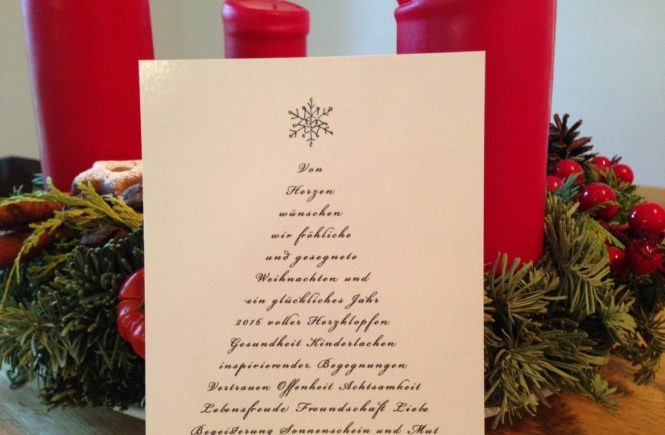 Von
Herzen
wünschen
wir fröhliche
und gesegnete
Weihnachten und
ein glückliches Jahr
2016 voller Herzklopfen
Gesundheit Kinderlachen
inspirierender Begegnungen
Vertrauen Offenheit Achtsamkeit
Lebensfreude Freundschaft Liebe
Begeisterung Sonnenschein und Mut